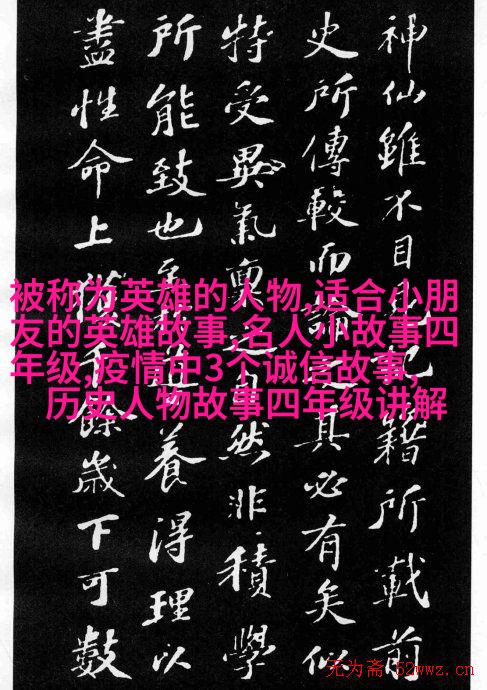 神仙雖不目見記籍所載前
史所傳較而論之其必有矣似
特受異氣稟之自然非積學
所能致也養得理以
盡性命上獲千餘歲下可數
被称为英雄的人物,适合小朋
友的英雄故事,名人小故事四
年级,疫情中3个诚信故事,
历史人物故事四年级讲解
无为斋 52wwz.cn